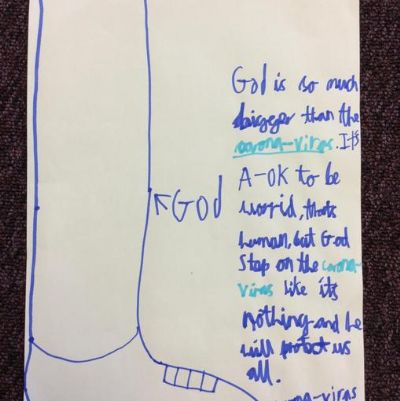 God is so much
bigger than the
corona-virus. It's
A-OK to be
worid, thats
human, but God
Stop on the corona-
virus like its
nothing and he
will protect us
all.
GOD
-virus